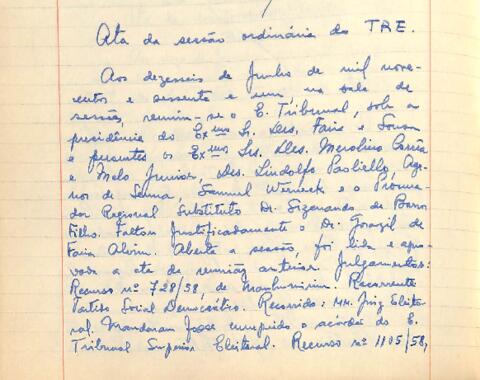 Ata da sessão ordinária do TRE.
Aos dezesseis de Junho de mil nove-
centos e sessenta e um, na sala de
sessão, reuniu-se o E. Tribunal, sob a
presidência do Exmo Sr. Des. Faria e Sousa
e presentes os Exmos Srs. Des. Merolino Corrêa
e Melo Junior, Des. Lindolfo Paoliello, Age-
nor de Senna, Samuel Werneck e o Procura-
dor Regional Substituto Dr. Sizenando de Barros
Filho. Faltou justificadamente o Dr. Gorazil de
Faria Alvim. Aberta a sessão, foi lida e apro-
vada a ata da reunião anterior. Julgamentos:
Recurso nº 728/58, de Manhumirim. Recorrente
Partido Social Democrático. Recorrido: MM. Juiz Eleito-
ral. Mandaram fosse cumprido o acórdão do E.
Tribunal Superior Eleitoral. Recurso nº 1105/58,